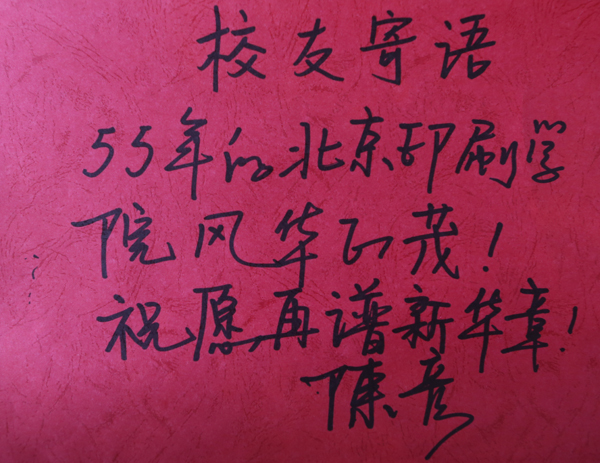 校友寄语
55年的北京印刷学
院风华正茂！
祝愿再谱新华章！
陈彦